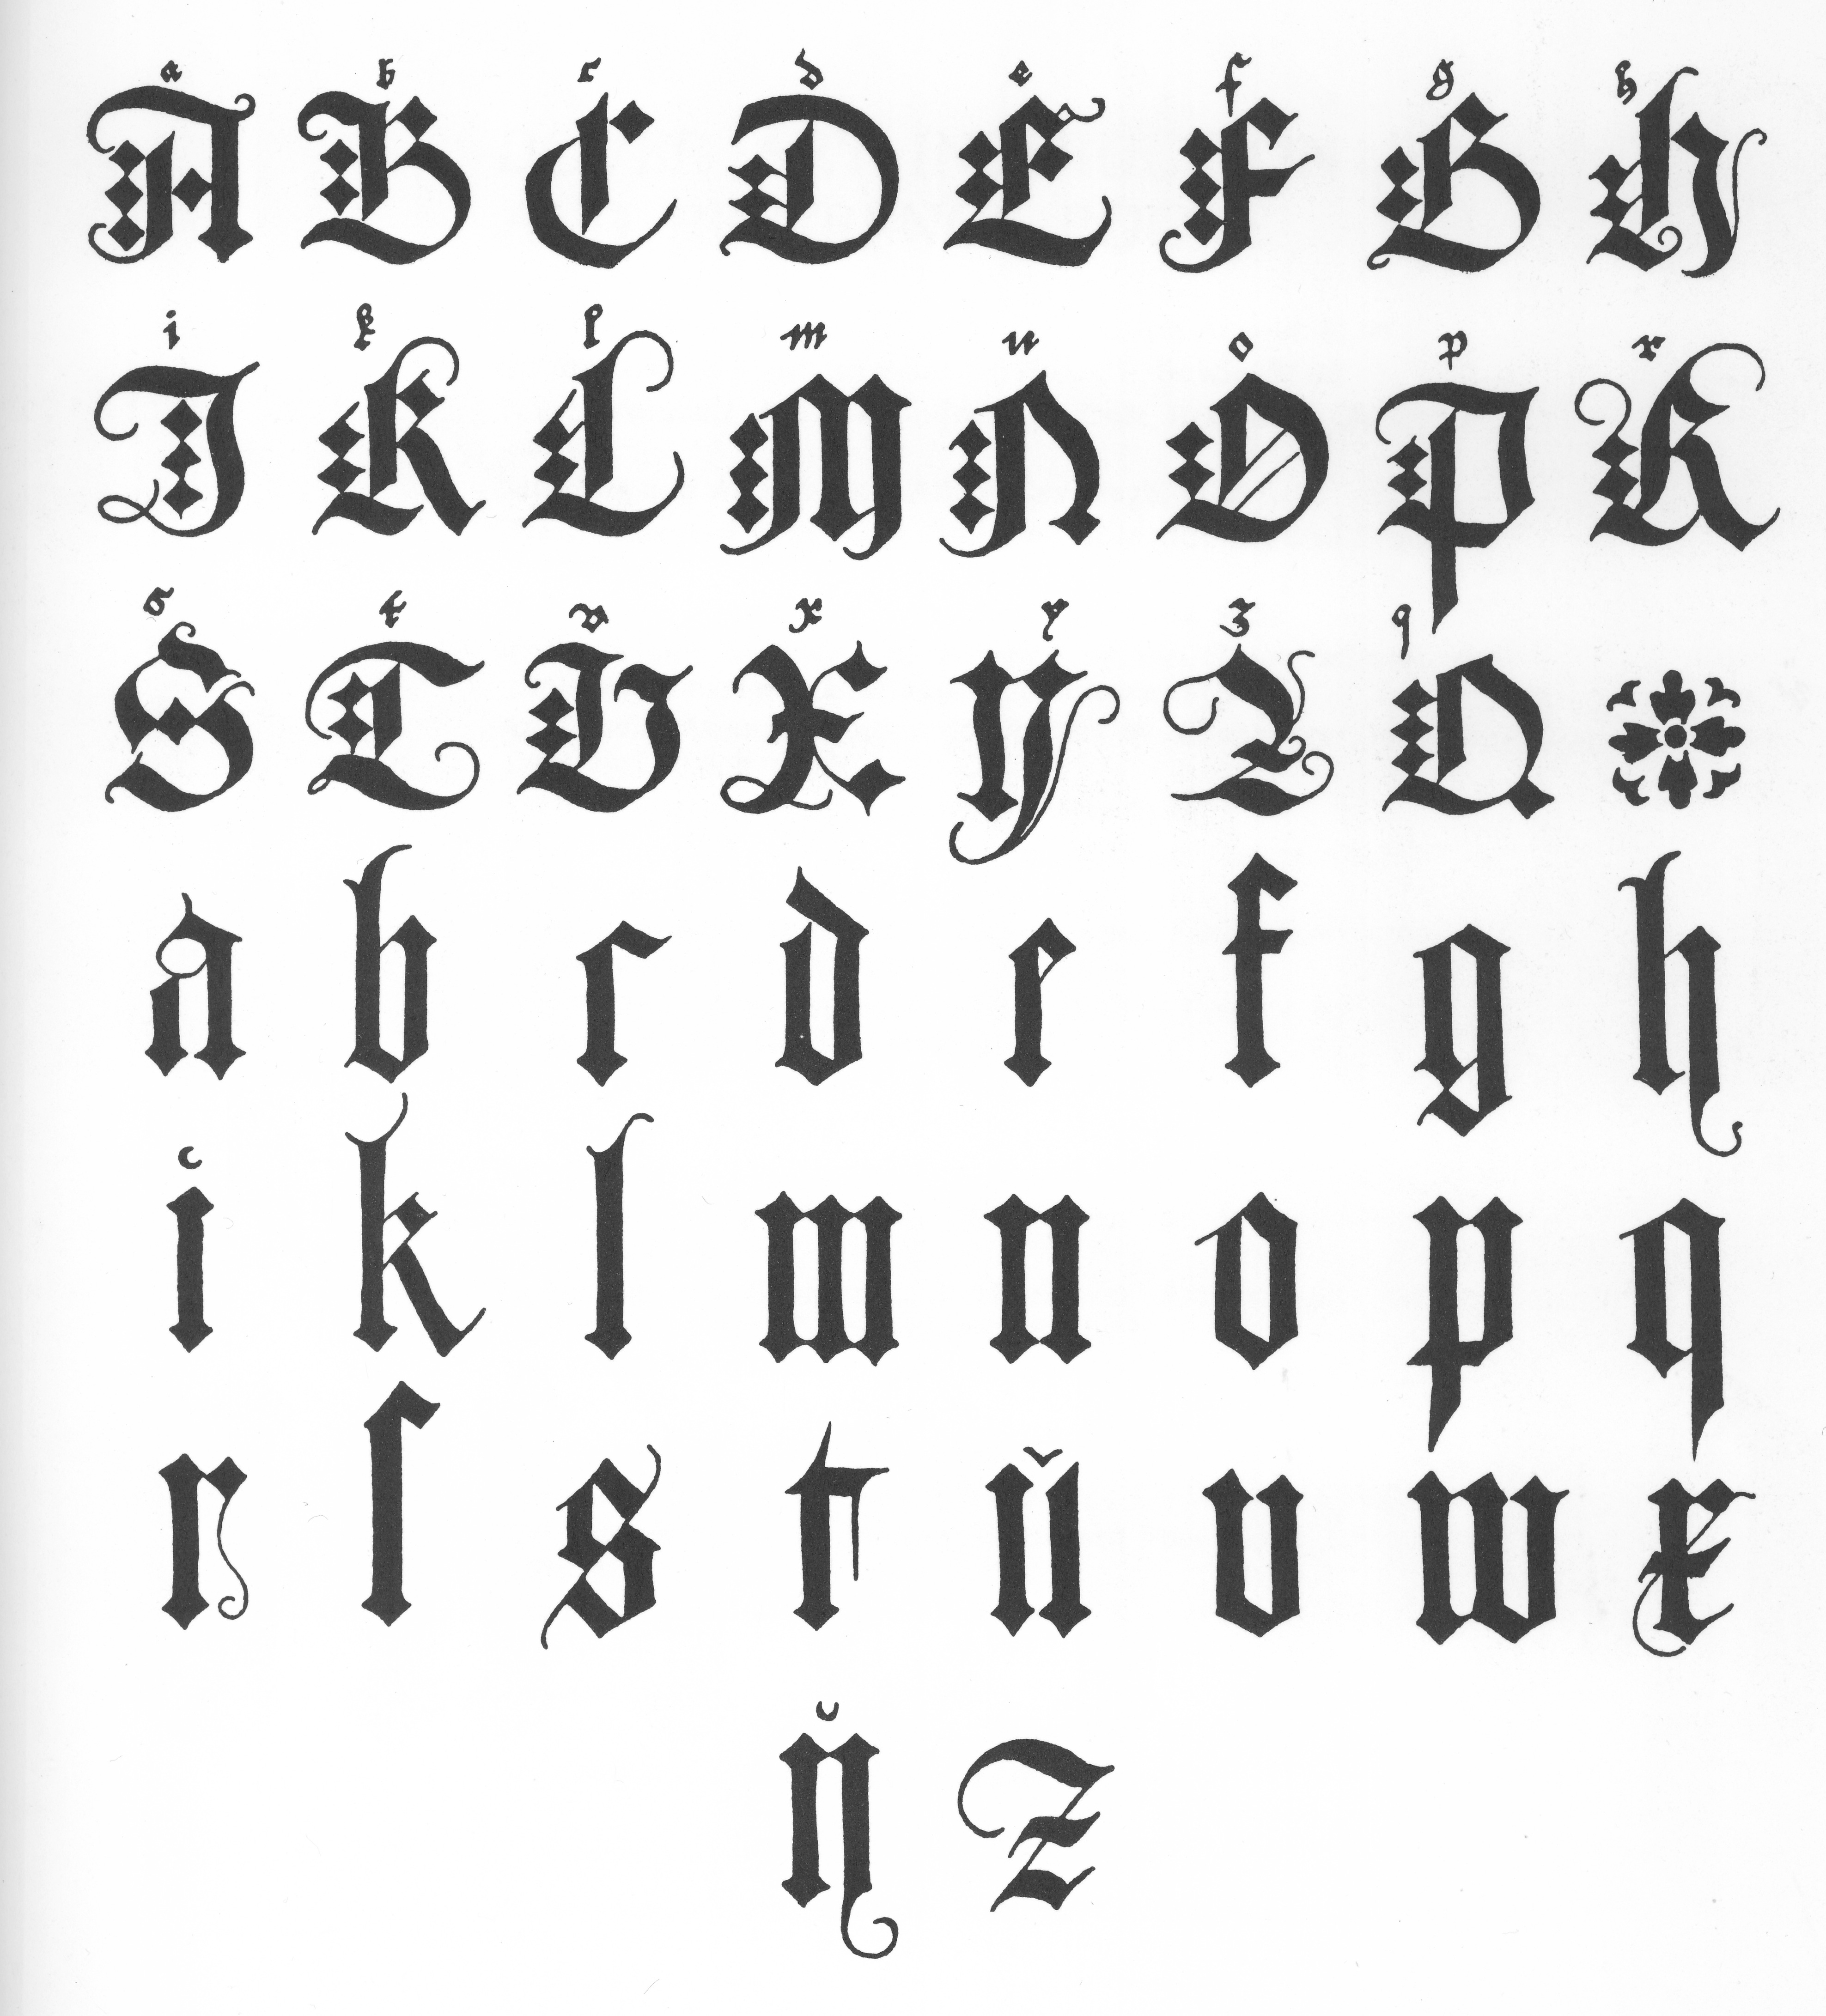 a b c d e f g h
A B C D E F G H
i k l m n o p r
I K L M N O P R
s t v x y z q
S T V X Y Z Q
a b c d e f g h
i k l m n o p q
r ſ s t ŭ v w x
y z